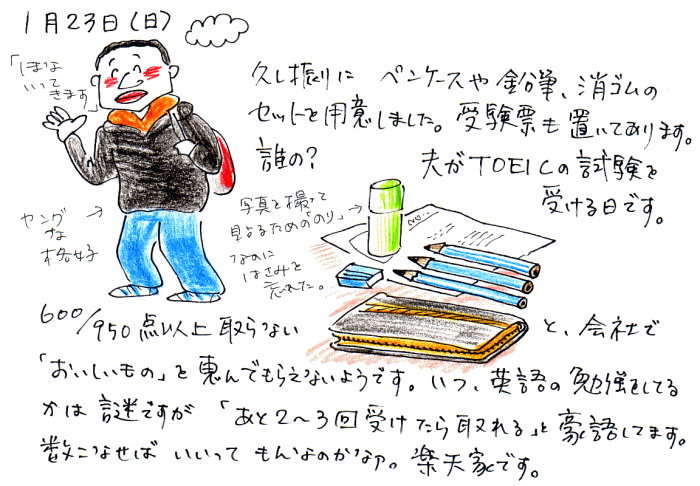 1月23日(日)
「じゃな
いって
きます」
久し振りに ペンケースや鉛筆、消ゴムの
セットを用意しました。受験票も置いてあります。
誰の? 夫がTOEICの試験を
受ける日です。
ヤング
な
格好
写真を撮って
見よるための「のり」
なのに
はさみを
忘れた。
NO...
600/950点以上取らない と、会社で
「おいしいもの」を恵んでもらえないようです。いつ、英語の勉強をしてる
かは謎ですが「あと2〜3回受けたら取れる」と豪語してます。
数こなせば いいって もんなのかなァ。楽天家です。